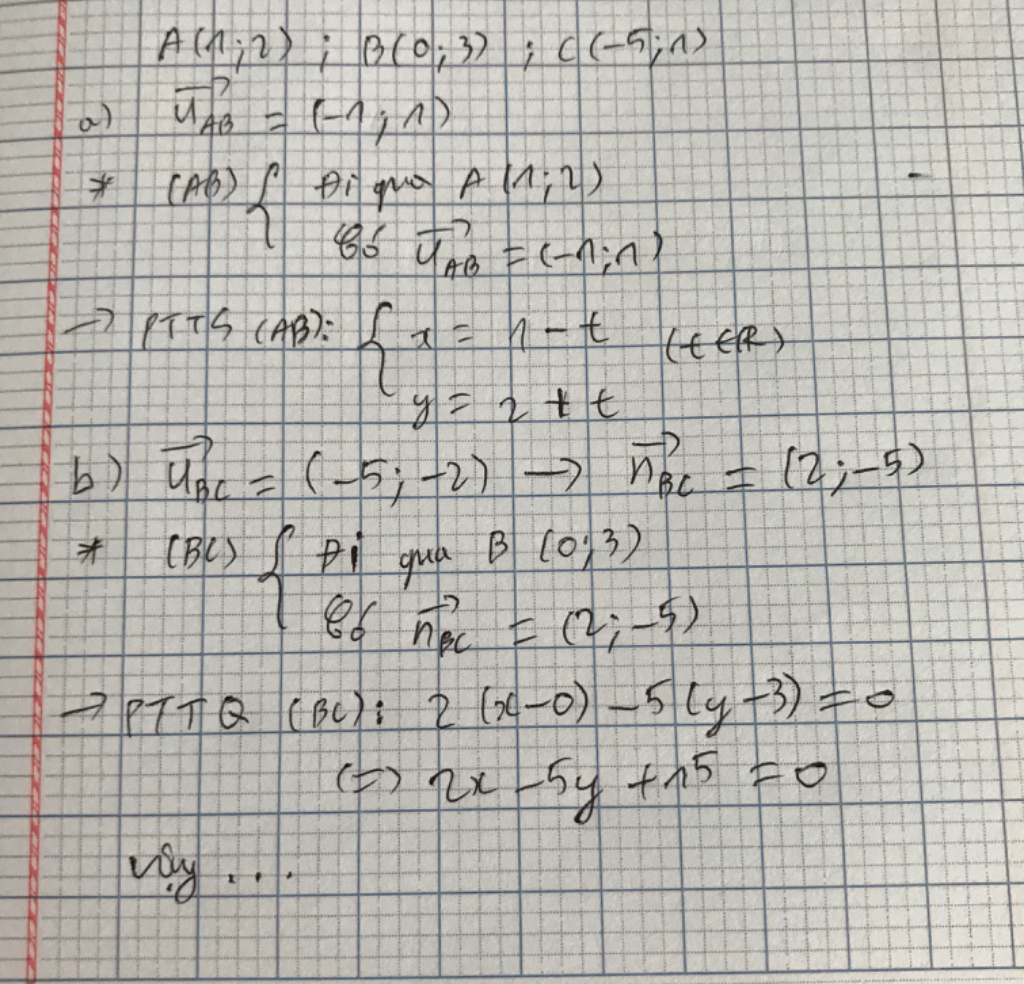 A(1;2) ; B(0;3) ; C(-5;1)
a) u⃗AB = (-1; 1)
* (AB) { Đi qua A (1;2)
Có u⃗AB = (-1;1)
→ PTTS (AB): { x = 1 - t (t ∈ R)
y = 2 + t
b) u⃗BC = (-5; -2) → n⃗BC = (2; -5)
* (BC) { Đi qua B (0;3)
Có n⃗BC = (2; -5)
→ PTTQ (BC): 2 (x-0) - 5 (y-3) = 0
(=) 2x - 5y + 15 = 0
vậy ...